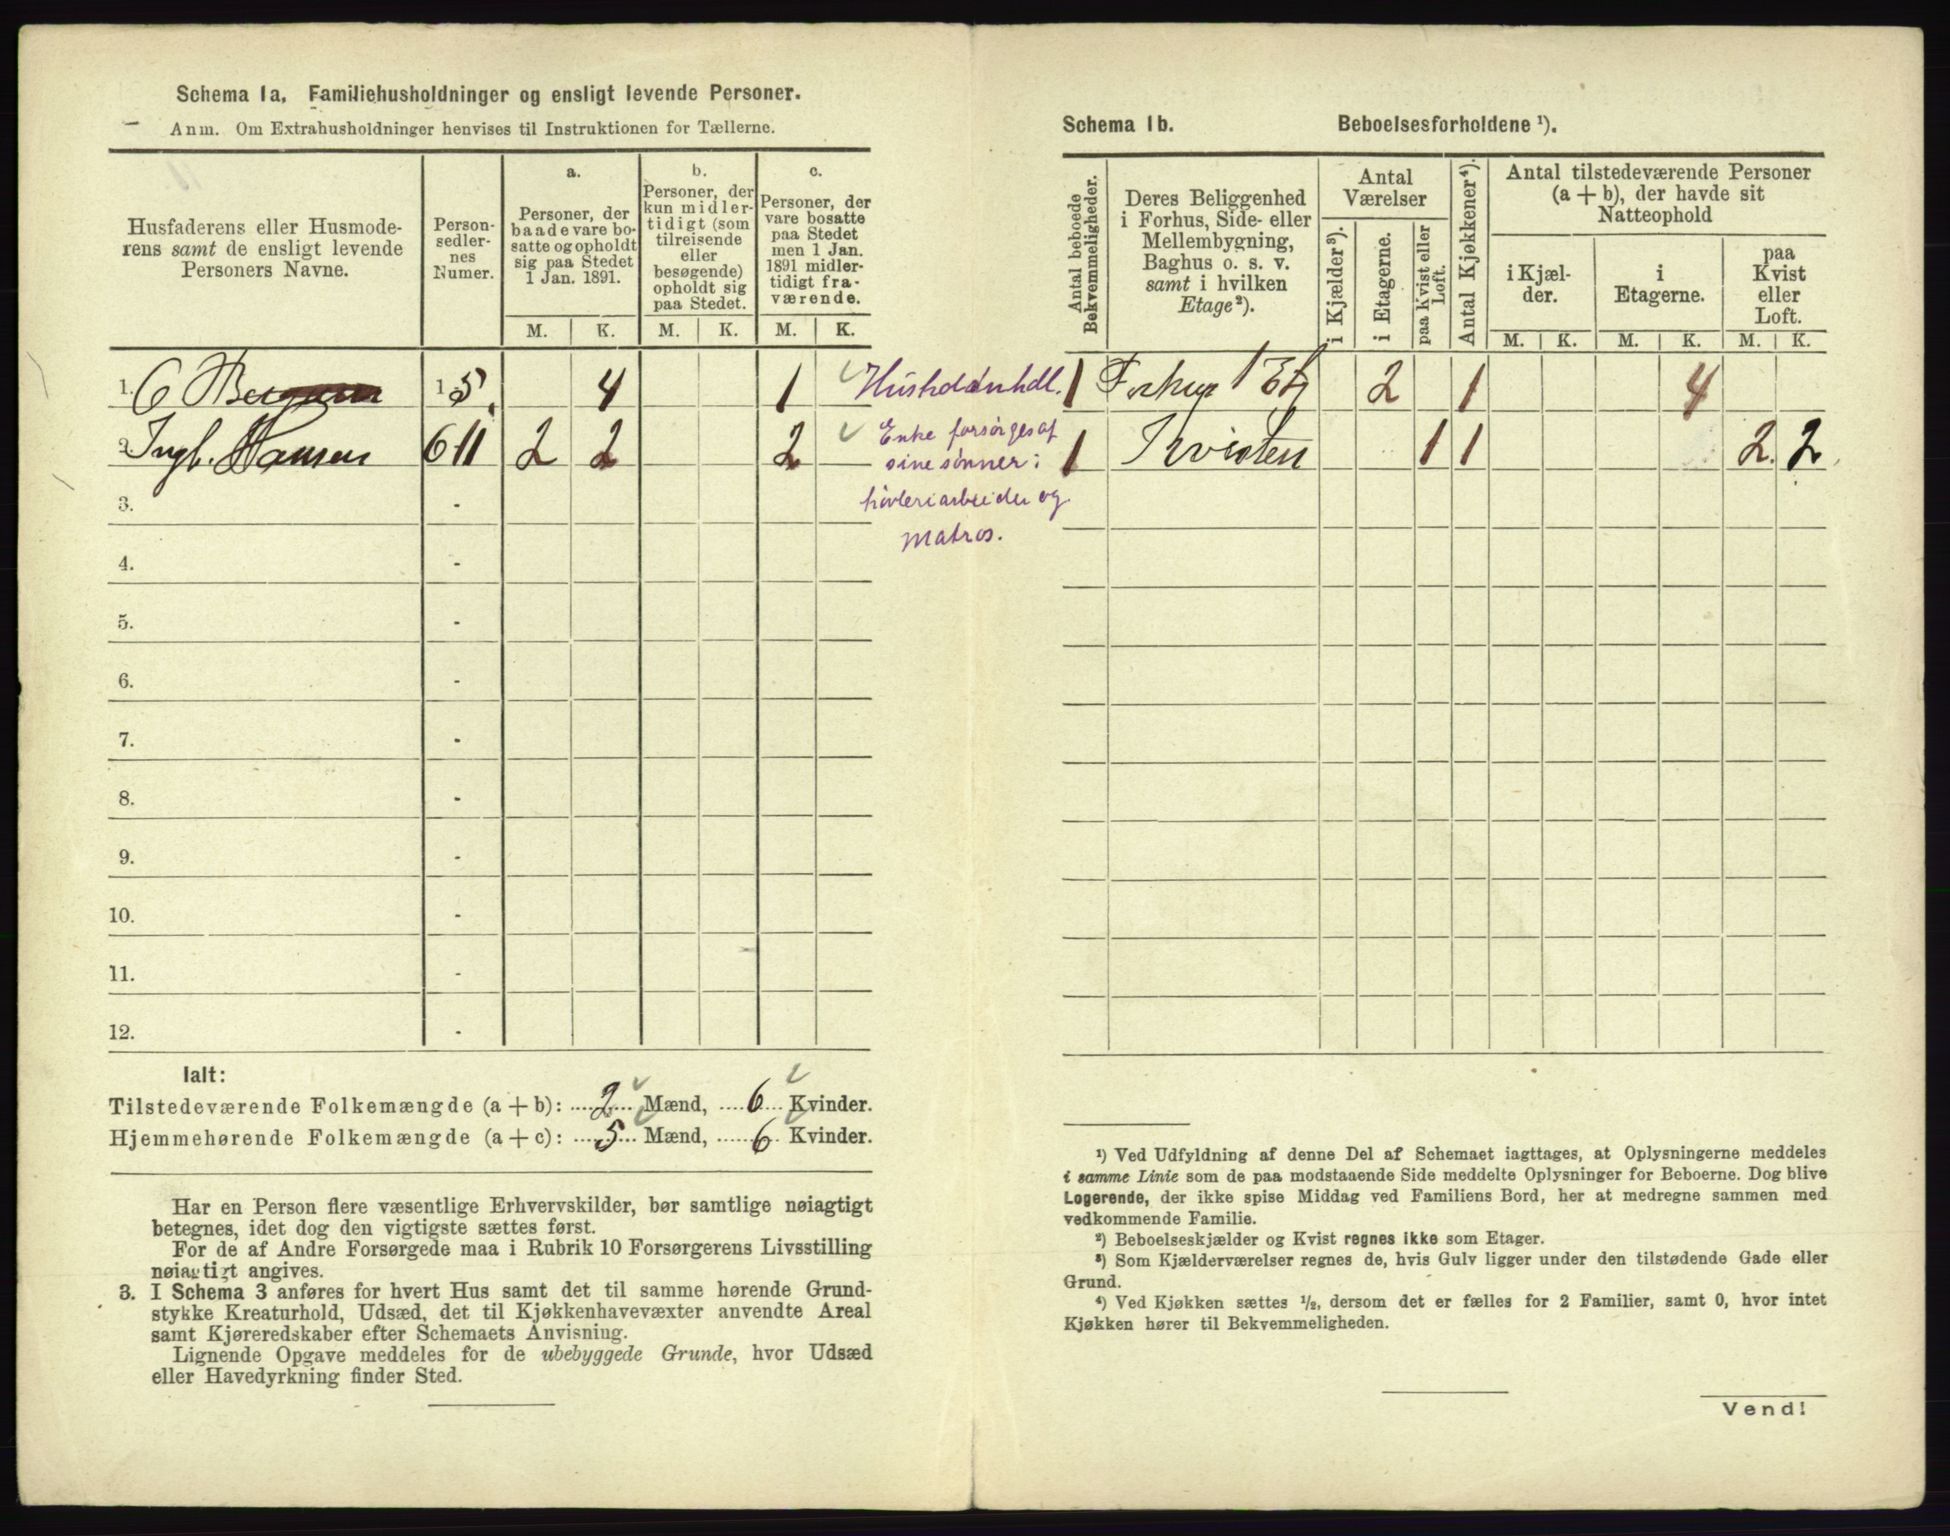 Schema 1a. Familiehusholdninger og ensligt levende Personer.
Anm. Om Extrahusholdninger henvises til Instruktionen for Tællerne.
Husfaderens eller Husmoderens samt de ensligt levende Personers Navne.
Person-sedler-nes Numer.
a.
Personer, der baade vare bosatte og opholdt sig paa Stedet 1 Jan. 1891.
b.
Personer, der kun midlertidigt (som tilreisende eller besøgende) opholdt sig paa Stedet.
c.
Personer, der vare bosatte paa Stedet men 1 Jan. 1891 midlertidigt fraværende.
M. K. M. K. M. K.
1. C Berg 1-5. 4 1 Husholdnhdl.
2. Ingb. Hansen 6-11 2 2 2 Enke forsørges af
sine sønner:
høvleriarbeider og
matros.
3. -
4. -
5. -
6. -
7. -
8. -
9. -
10. -
11. -
12. -
Ialt:
Tilstedeværende Folkemængde (a + b): 2 Mænd, 6 Kvinder.
Hjemmehørende Folkemængde (a + c): 5 Mænd, 6 Kvinder.
Har en Person flere væsentlige Erhvervskilder, bør samtlige nøiagtigt
betegnes, idet dog den vigtigste sættes først.
For de af Andre Forsørgede maa i Rubrik 10 Forsørgerens Livsstilling
nøiagtigt angives.
3. I Schema 3 anføres for hvert Hus samt det til samme hørende Grund-
stykke Kreaturhold, Udsæd, det til Kjøkkenhavevæxter anvendte Areal
samt Kjøreredskaber efter Schemaets Anvisning.
Lignende Opgave meddeles for de ubebyggede Grunde, hvor Udsæd
eller Havedyrkning finder Sted.
Schema 1b. Beboelsesforholdene ¹).
Antal beboede Bekvemmeligheder.
Deres Beliggenhed i Forhus, Side- eller Mellembygning, Baghus o. s. v. samt i hvilken Etage²).
Antal Værelser
i Kjælder³).
i Etagerne.
paa Kvist eller Loft.
Antal Kjøkkener⁴).
Antal tilstedeværende Personer (a + b), der havde sit Natteophold
i Kjælder.
i Etagerne.
paa Kvist eller Loft.
M. K. M. K. M. K.
1 Forhus 1 Etg 2 1 4
1 Kvisten 1 1 2. 2
¹) Ved Udfyldning af denne Del af Schemaet iagttages, at Oplysningerne meddeles
i samme Linie som de paa modstaaende Side meddelte Oplysninger for Beboerne. Dog blive
Logerende, der ikke spise Middag ved Familiens Bord, her at medregne sammen med
vedkommende Familie.
²) Beboelseskjælder og Kvist regnes ikke som Etager.
³) Som Kjælderværelser regnes de, hvis Gulv ligger under den tilstødende Gade eller
Grund.
⁴) Ved Kjøkken sættes ½, dersom det er fælles for 2 Familier, samt 0, hvor intet
Kjøkken hører til Bekvemmeligheden.
Vend!